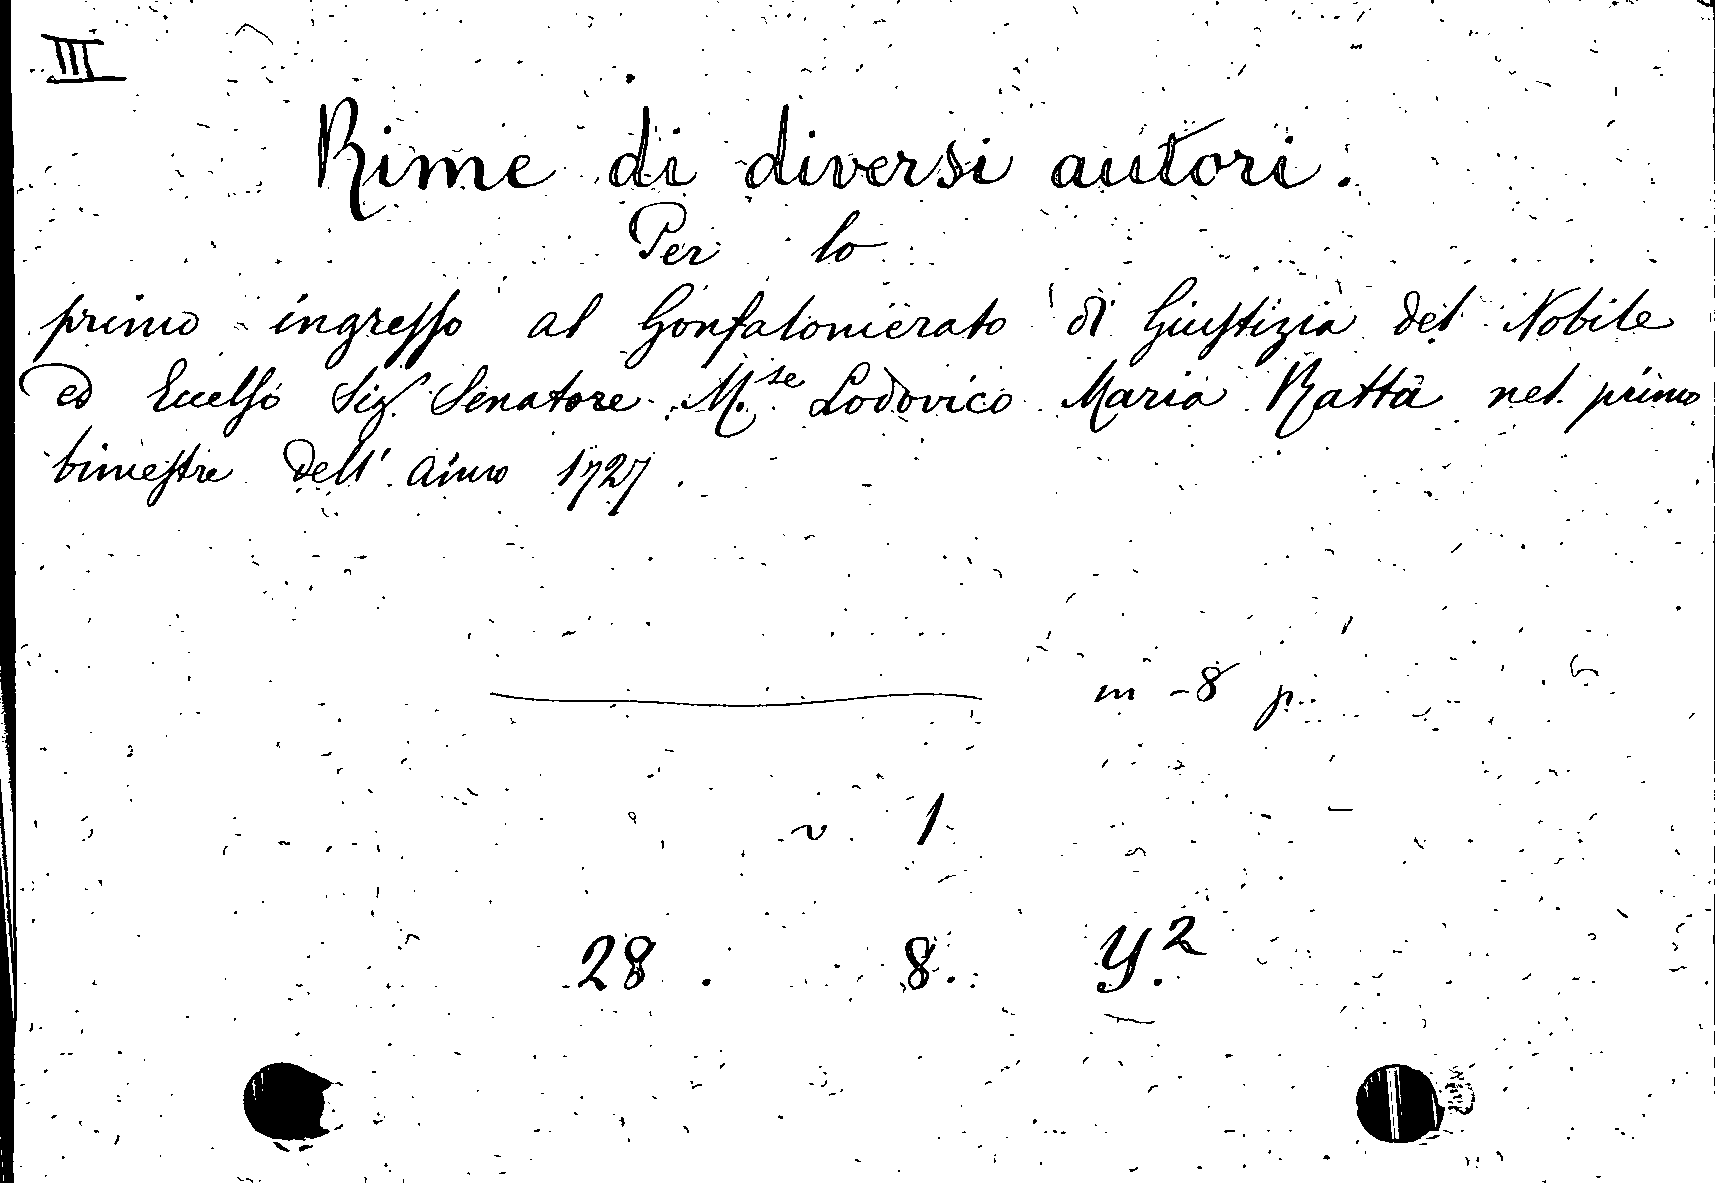 III
Rime di diversi autori.
Per lo
primo ingresso al Gonfalonierato di Giustizia del Nobile
ed Eccelso Sig. Senatore M.se Lodovico Maria Ratta nel primo
bimestre dell' anno 1727.
in-8 p.
v. 1
28. 8. Y.2